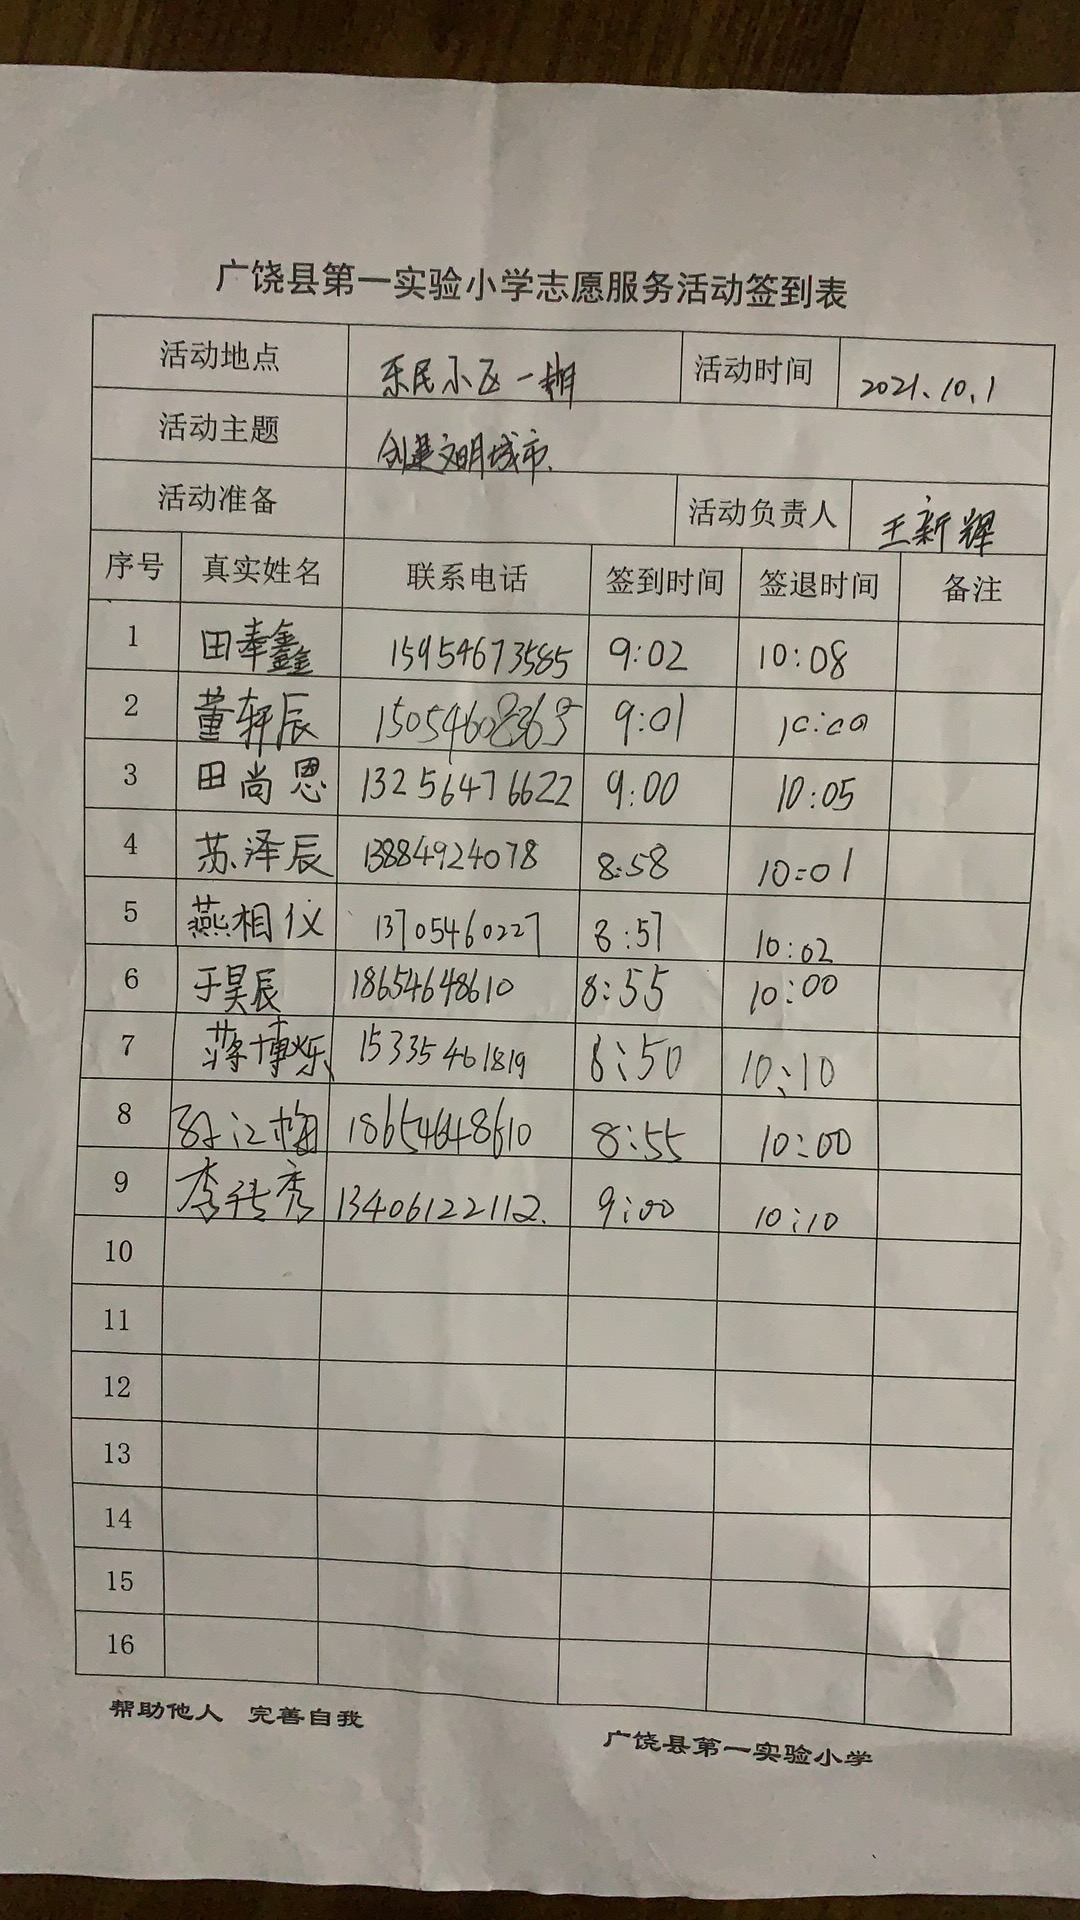 广饶县第一实验小学志愿服务活动签到表
活动地点 乐民小区一期 活动时间 2021.10.1
活动主题 创建文明城市.
活动准备 活动负责人 王新辉
序号 真实姓名 联系电话 签到时间 签退时间 备注
1 田奉鑫 15954673585 9:02 10:08
2 董轩辰 9:01
3 田尚恩 13256476622 9:00 10:05
4 苏泽辰 13884924078 8:58 10:01
5 燕相仪 13705460227 8:57 10:02
6 于昊辰 18654648610 8:55 10:00
7 蒋博烁 15335461819 8:50 10:10
8 孙江梅 18654648610 8:55 10:00
9 李传秀 13406122112. 9:00 10:10
10
11
12
13
14
15
16
帮助他人 完善自我
广饶县第一实验小学